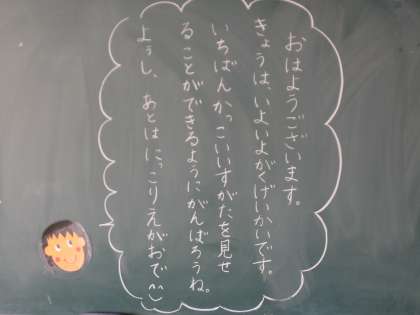 おはようございます。
きょうは、いよいよがくげいかいです。
いちばんかっこいいすがたを見せ
ることができるようにがんばろうね。
よぅし、あとはにっこりえがおで^^